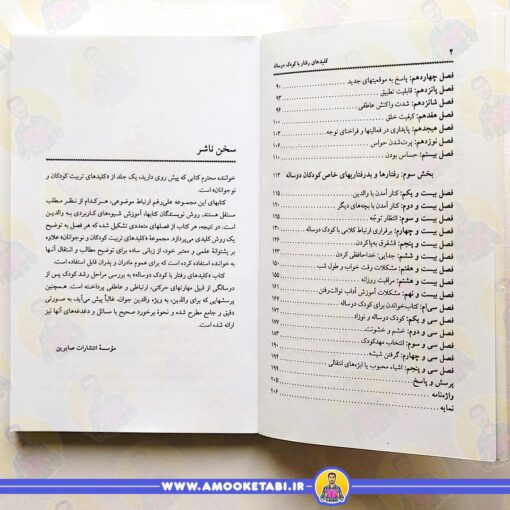 ۴
کلیدهای رفتار با کودک دوساله
فصل چهاردهم: پاسخ به موقعیتهای جدید ۹۰
فصل پانزدهم: قابلیت تطبیق ۹۳
فصل شانزدهم: شدت واکنش عاطفی ۹۶
فصل هفدهم: کیفیت خلق
فصل هیجدهم: پایداری در فعالیتها و فراخنای توجه
فصل نوزدهم: پرت‌شدن حواس
فصل بیستم: حساس بودن ۱۱۰
بخش سوم: رفتارها و بدرفتاریهای خاص کودکان دوساله ۱۱۳
فصل بیست و یکم: کنار آمدن با والدین ۱۱۵
فصل بیست و دوم: کنار آمدن با بچه‌های دیگر
فصل بیست و سوم: انتظار توجّه
فصل بیست و چهارم: برقراری ارتباط کلامی با کودک دوساله
فصل بیست و پنجم: قشقرق به‌پاکردن
فصل بیست و ششم: جدایی: خداحافظی کردن
فصل بیست و هفتم: مشکلات وقت خواب و طول شب
فصل بیست و هشتم: مراقبت روزانه
فصل بیست و نهم: مشکلات آموزش آداب توالت‌رفتن
فصل سی‌ام: کتاب‌خواندن برای کودک دوساله
فصل سی و یکم: کودک دوساله و نوزاد
فصل سی و دوم: خشم و خشونت
فصل سی و سوم: انتخاب مهدکودک
فصل سی و چهارم: گرفتن شیشه
فصل سی و پنجم: اشیاء محبوب یا ابژه‌های انتقالی
پرسش و پاسخ ۱۹۹
واژه‌نامه ۲۰۵
نمایه ۲۰۶
سخن ناشر
خواننده محترم کتابی که پیش روی دارید، یک جلد از «کلیدهای تربیت کودکان و
نوجوانان» است.
کتابهای این مجموعه علی‌رغم ارتباط موضوعی، هرکدام از نظر مطلب
مستقل هستند. روش نویسندگان کتابها، آموزش شیوه‌های کاربردی به والدین
است. در نتیجه، هر کتاب از فصلهای متعددی تشکیل شده که هر فصل به توضیح
یک روش کلیدی می‌پردازد. مجموعهٔ «کلیدهای تربیت کودکان و نوجوانان» علاوه بر
پشتوانهٔ علمی و معتبر خود، از زبانی ساده برای توضیح مطالب و انتقال آنها
به خواننده استفاده کرده است تا برای عموم مادران و پدران قابل استفاده باشد.
کتاب «کلیدهای رفتار با کودک دوساله» به بررسی مراحل رشد کودک پس از
دوسالگی از قبیل مهارتهای حرکتی، ارتباطی و عاطفی پرداخته است. همچنین
پرسشهایی که برای والدین، به ویژه والدین جوان، غالباً پیش می‌آید، به صورتی
دقیق و جامع مطرح شده و نحوهٔ برخورد صحیح با مسائل و دغدغه‌های آنها نیز
ارائه شده است.
مؤسسهٔ انتشارات صابرین
WWW.AMOOKETABI.IR